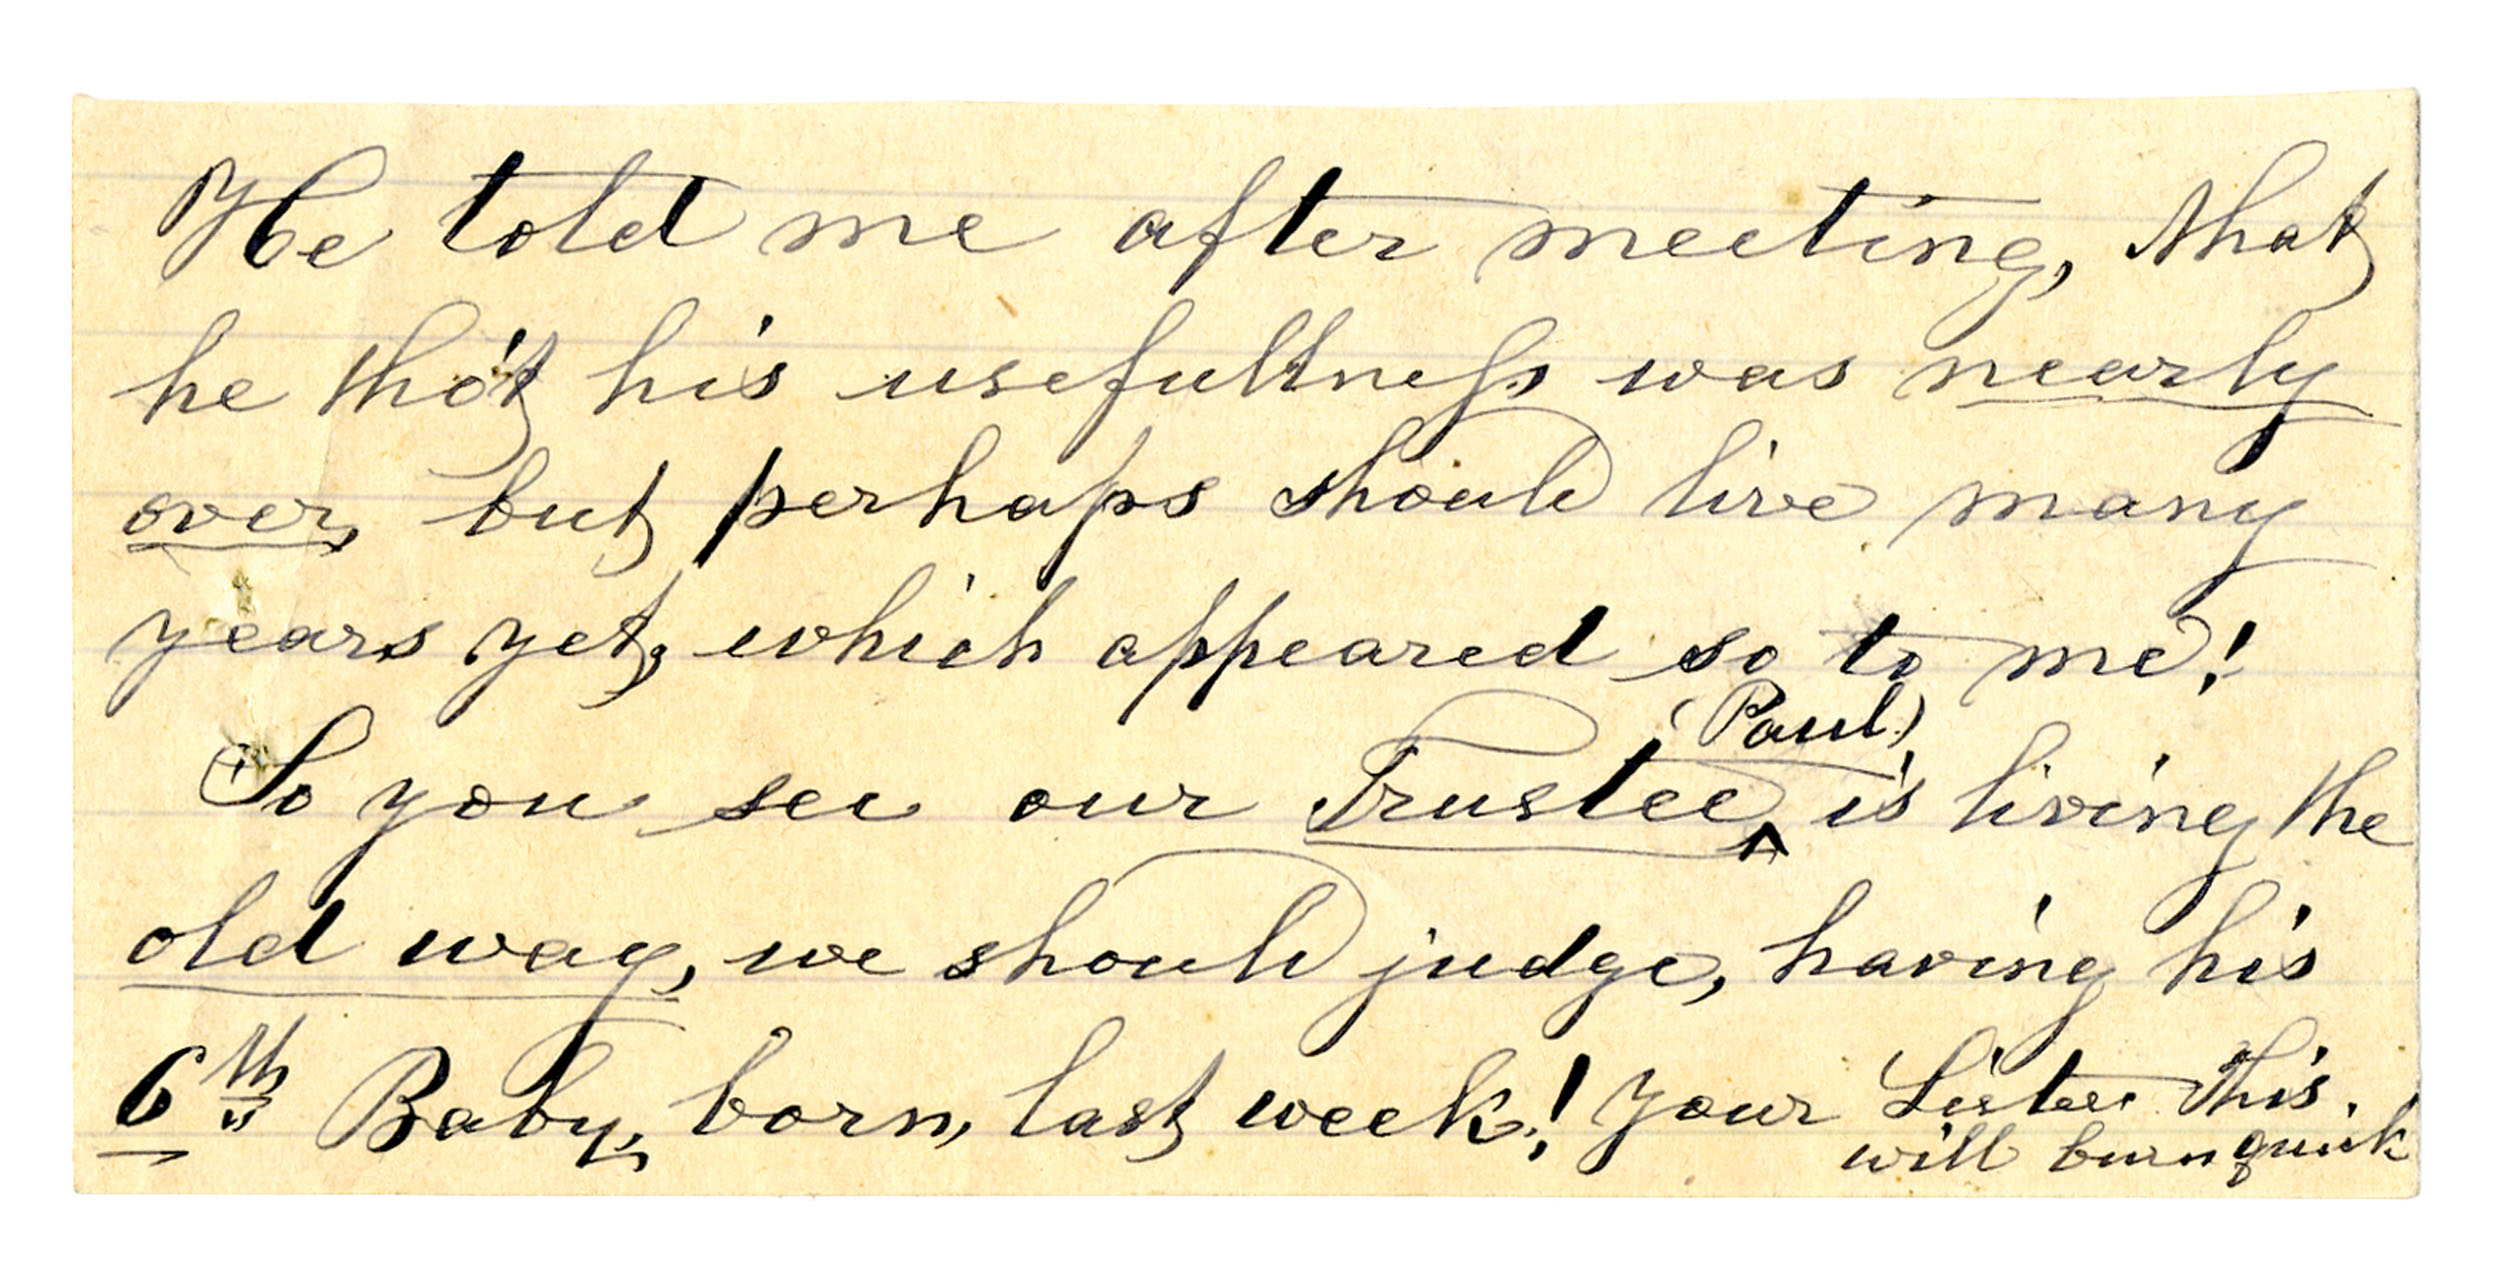 He told me after meeting, that
he tho't his usefullness was nearly
over, but perhaps should live many
years yet, which appeared so to me!
So you see our Trustee (Paul) is living the
old way, we should judge, having his
6th Baby, born, last week! Your Sister this.
will burn quick